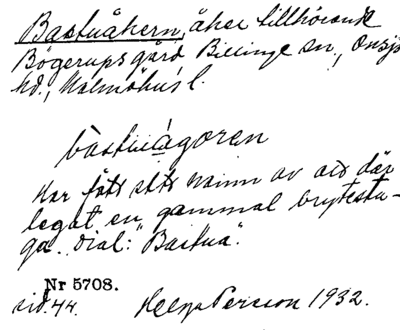 Bastuåkern, åker tillhörande
Bögerups gård Billinge sn., Onsjö
hd., Malmöhus l.
bastuågoren
Har fått sitt namn av att där
legat en gammal brytestu-
ga. Dial: "Bastua".
Nr 5708.
sid. 44. Helga Persson 1932.